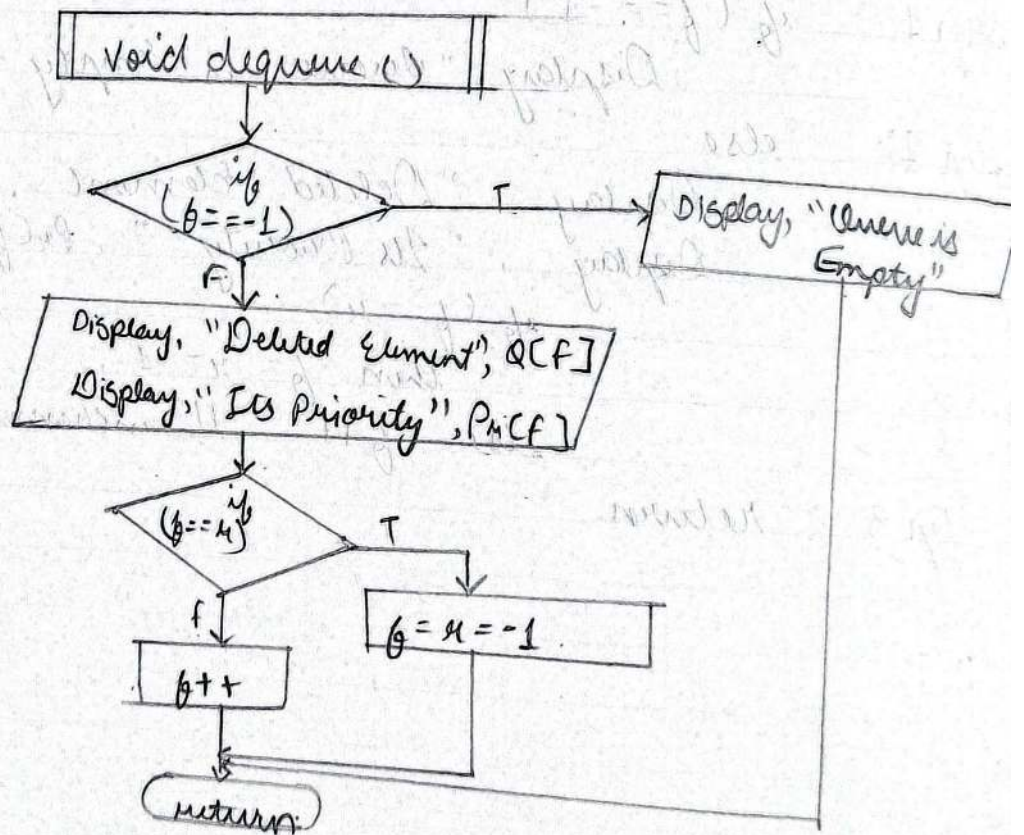 void dequeue ()
if
(f==-1)
T
Display, "Queue is
Empty"
F
Display, "Deleted Element", Q[F]
Display, "Its Priority", Pr[F]
if
(f==r)
T
f
f = r = -1
f++
return